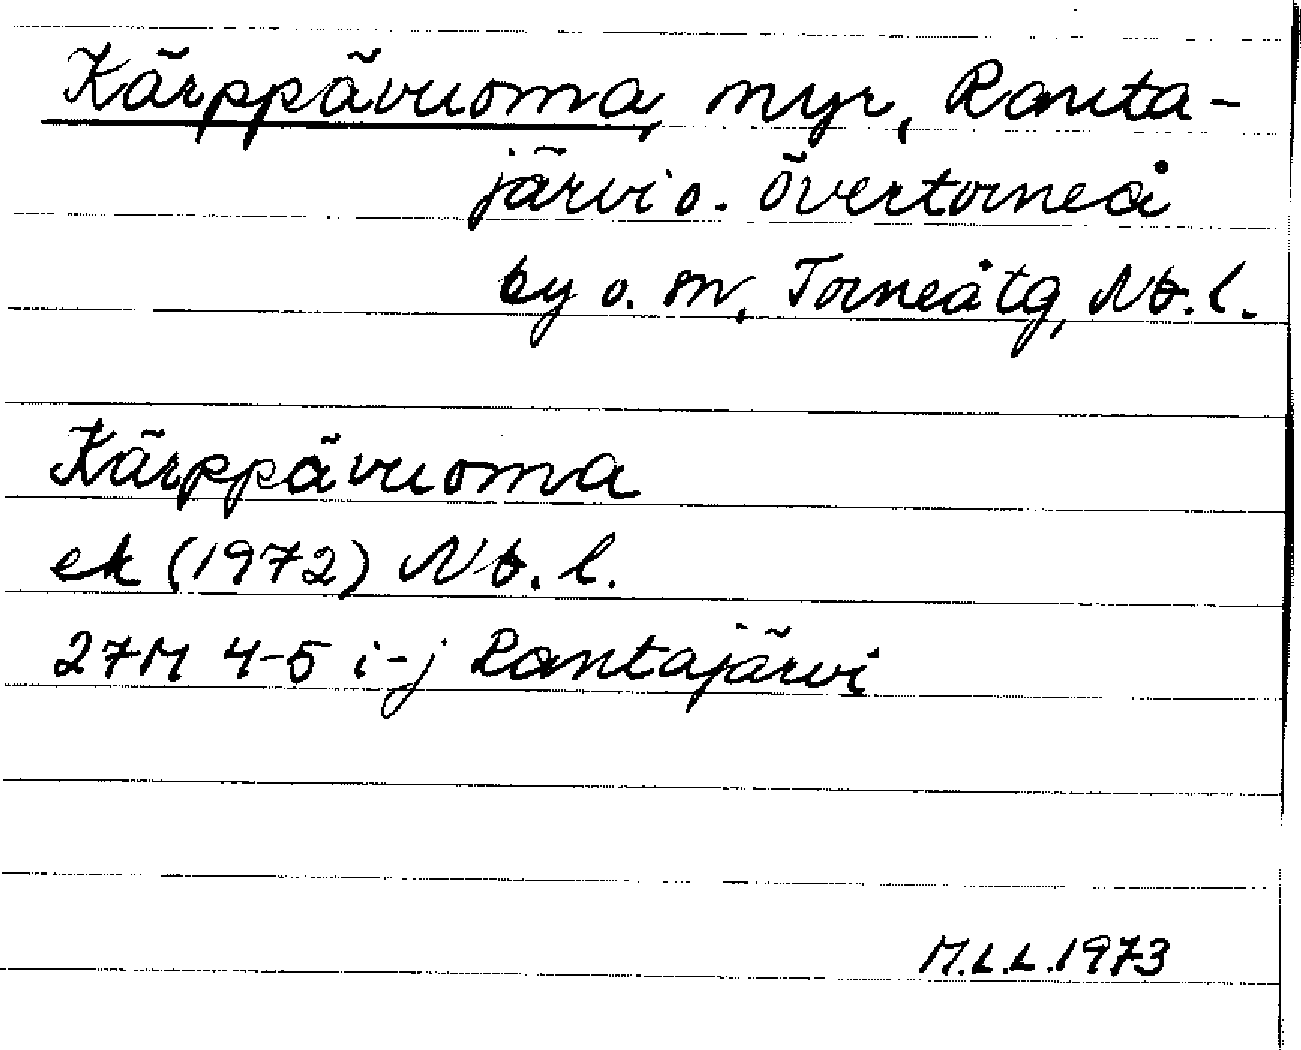 Kärppävuoma, myr, Ranta-
järvi o. Övertorneå
by o. sn, Torneå tg, Nb. l.
Kärppävuoma
ek (1972) Nb. l.
27M 4-5 i-j Rantajärvi
M.L.L. 1973